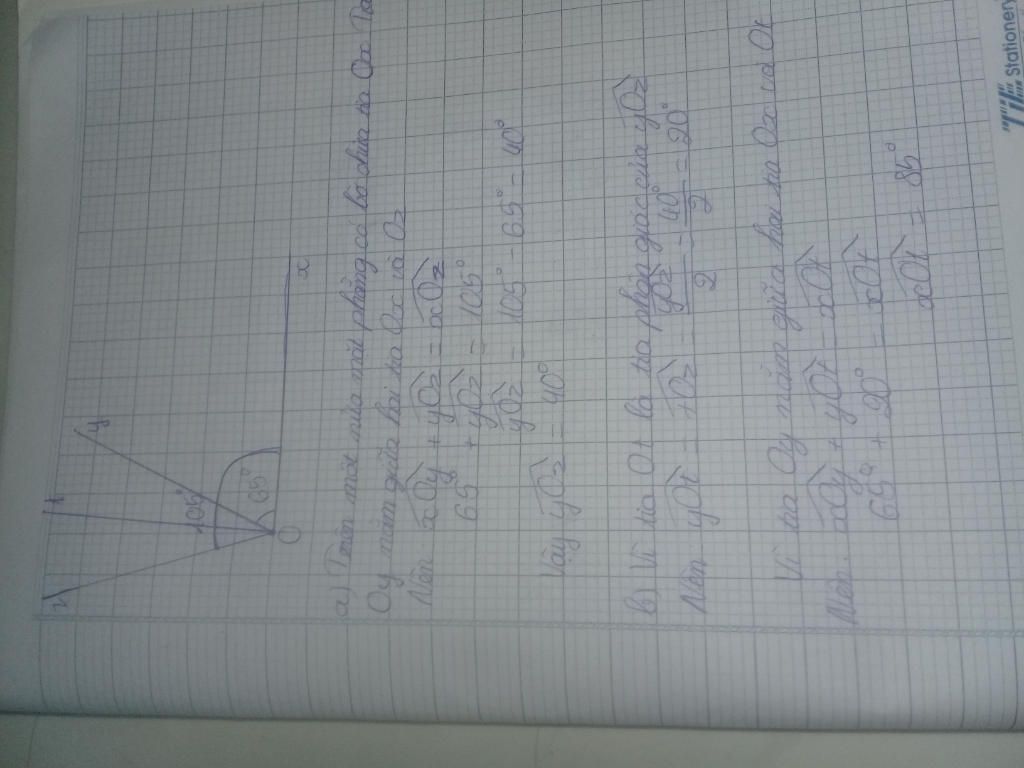 z
t
y
105°
65°
O
x
a) Trên một nửa mặt phẳng có bờ chứa tia Ox
Oy nằm giữa hai tia Ox và Oz
Nên xOy + yOz = xOz
65° + yOz = 105°
yOz = 105° - 65° = 40°
Vậy yOz = 40°
b) Vì tia Ot là tia phân giác của yOz
Nên yOt = tOz = yOz/2 = 40°/2 = 20°
Vì tia Oy nằm giữa hai tia Ox và Ot
Nên xOy + yOt = xOt
65° + 20° = xOt
xOt = 85°
Stationery